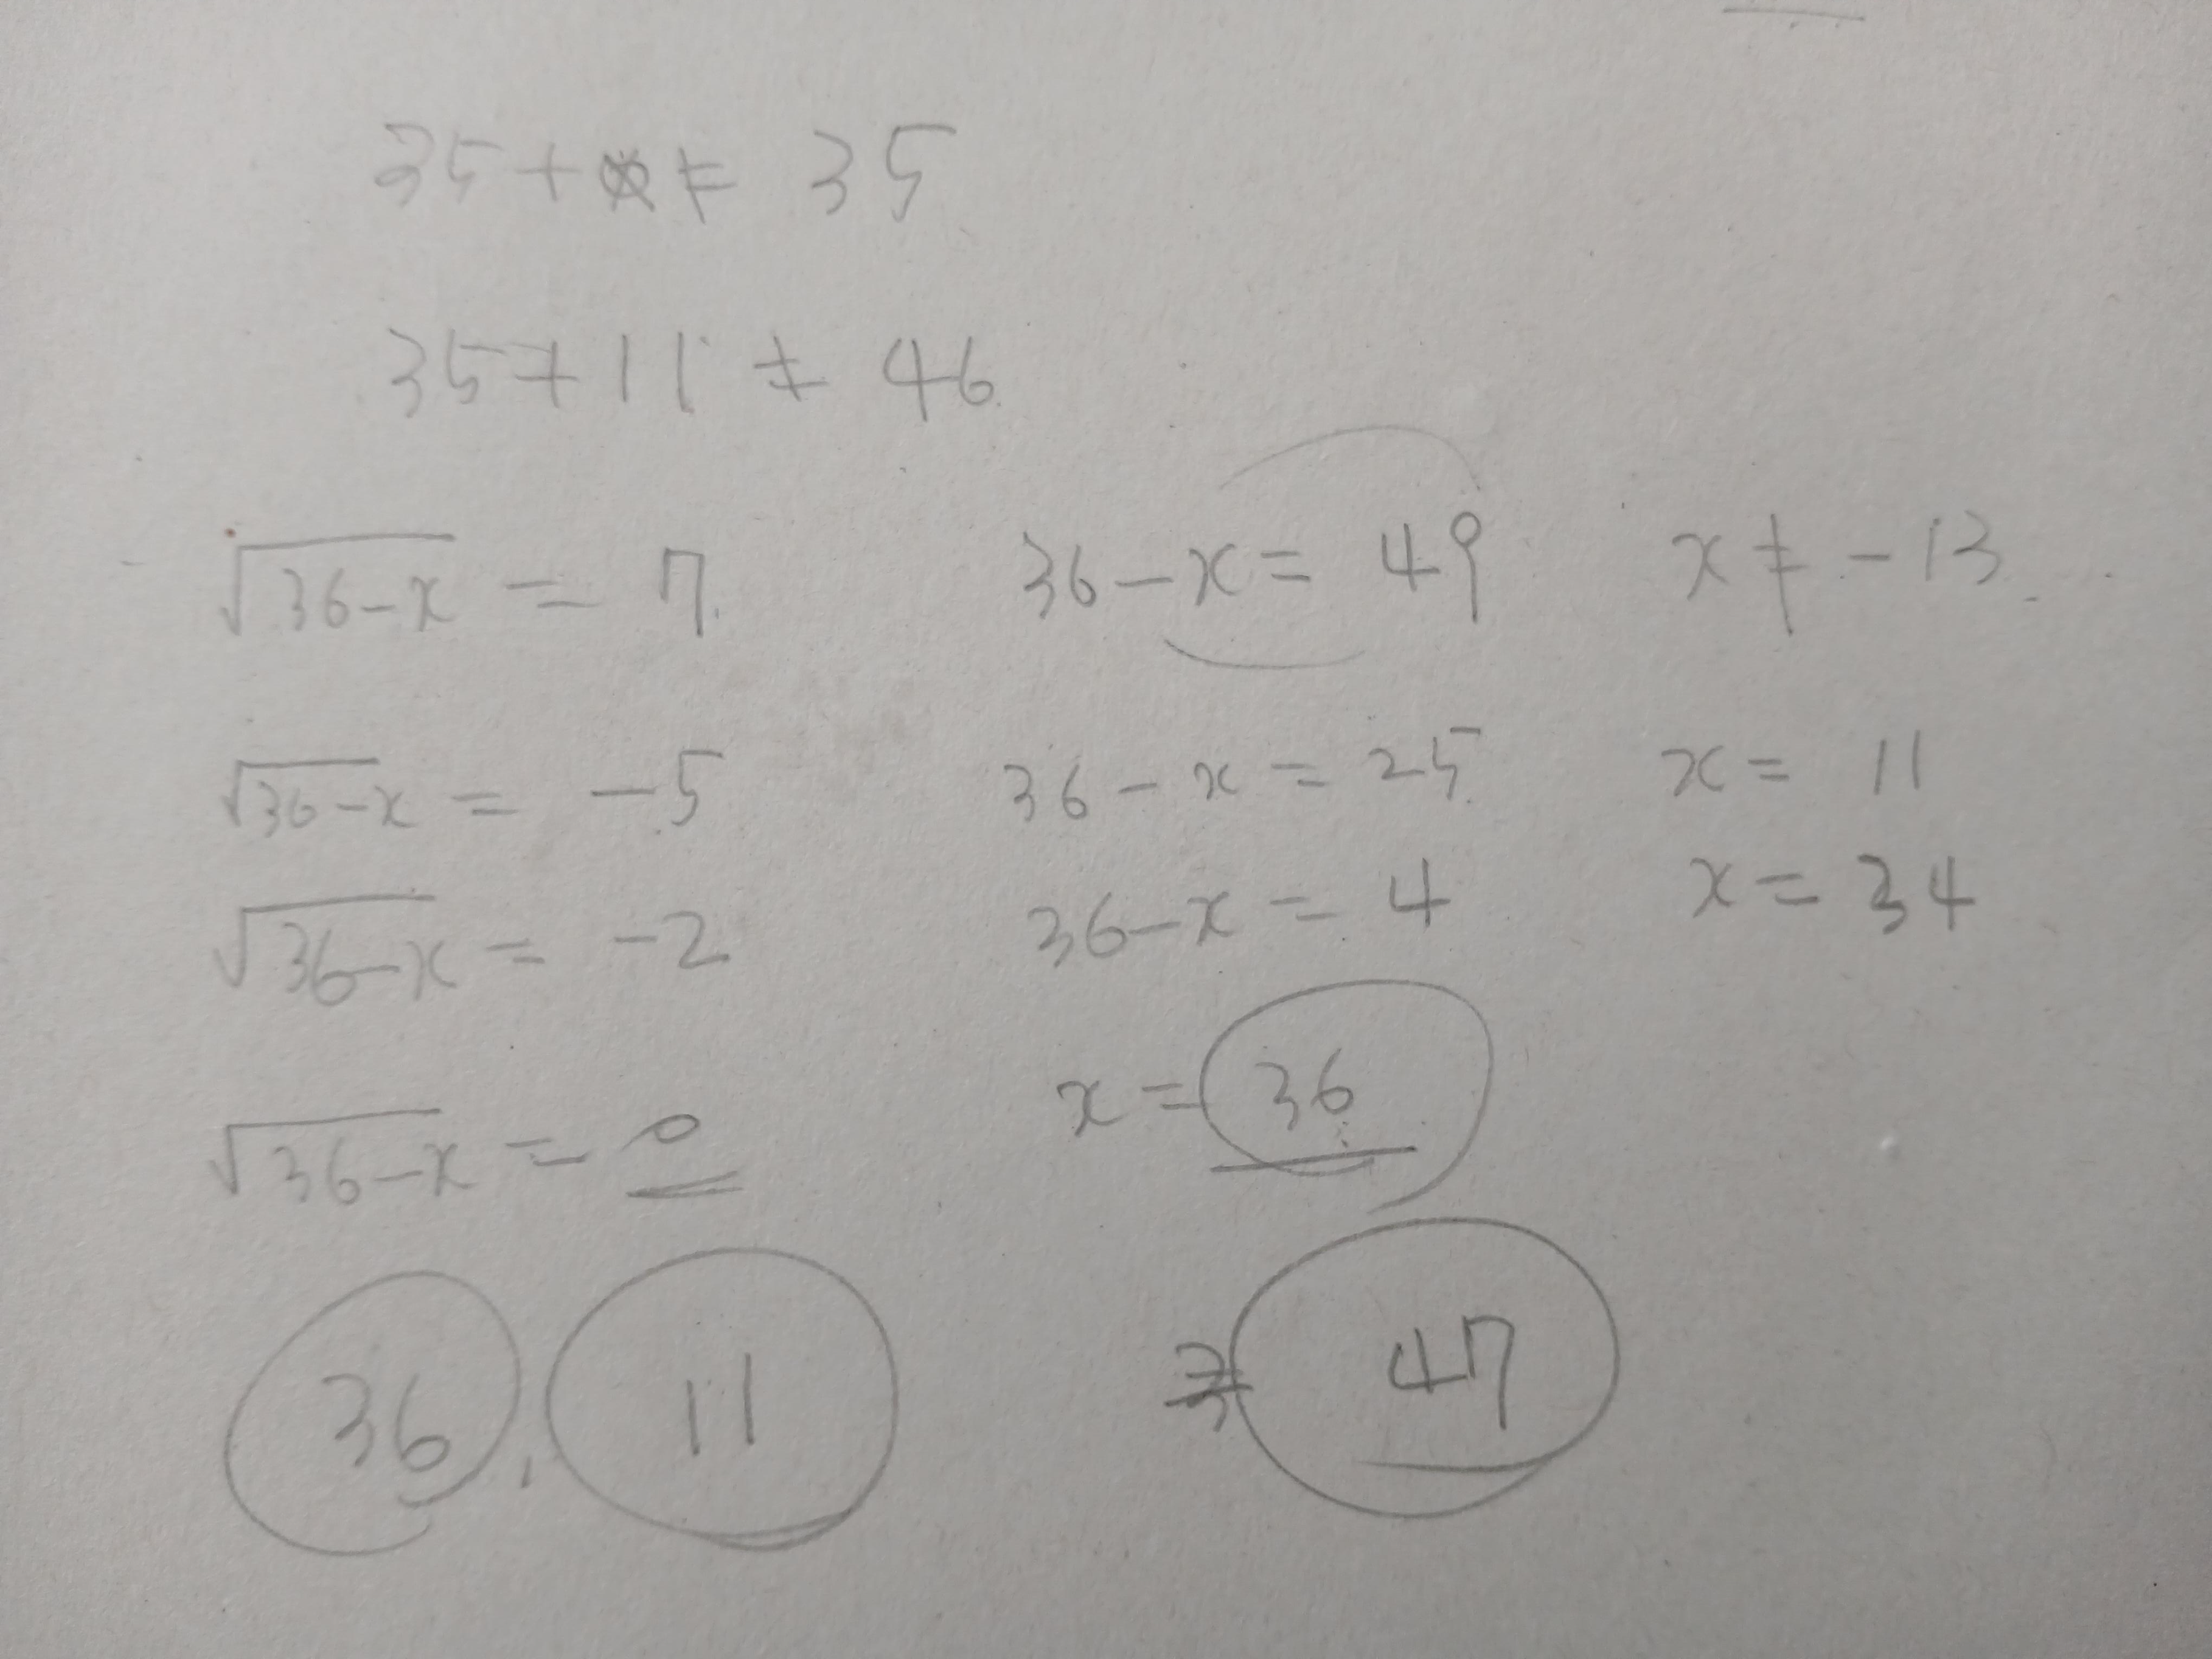 35 + = 35
35 + 11 ≠ 46
√36-x = 7. 36-x = 49 x ≠ -13
√36-x = -5 36-x = 25 x = 11
√36-x = -2 36-x = 4 x = 34
√36-x = 0 x = 36
36, 11 47